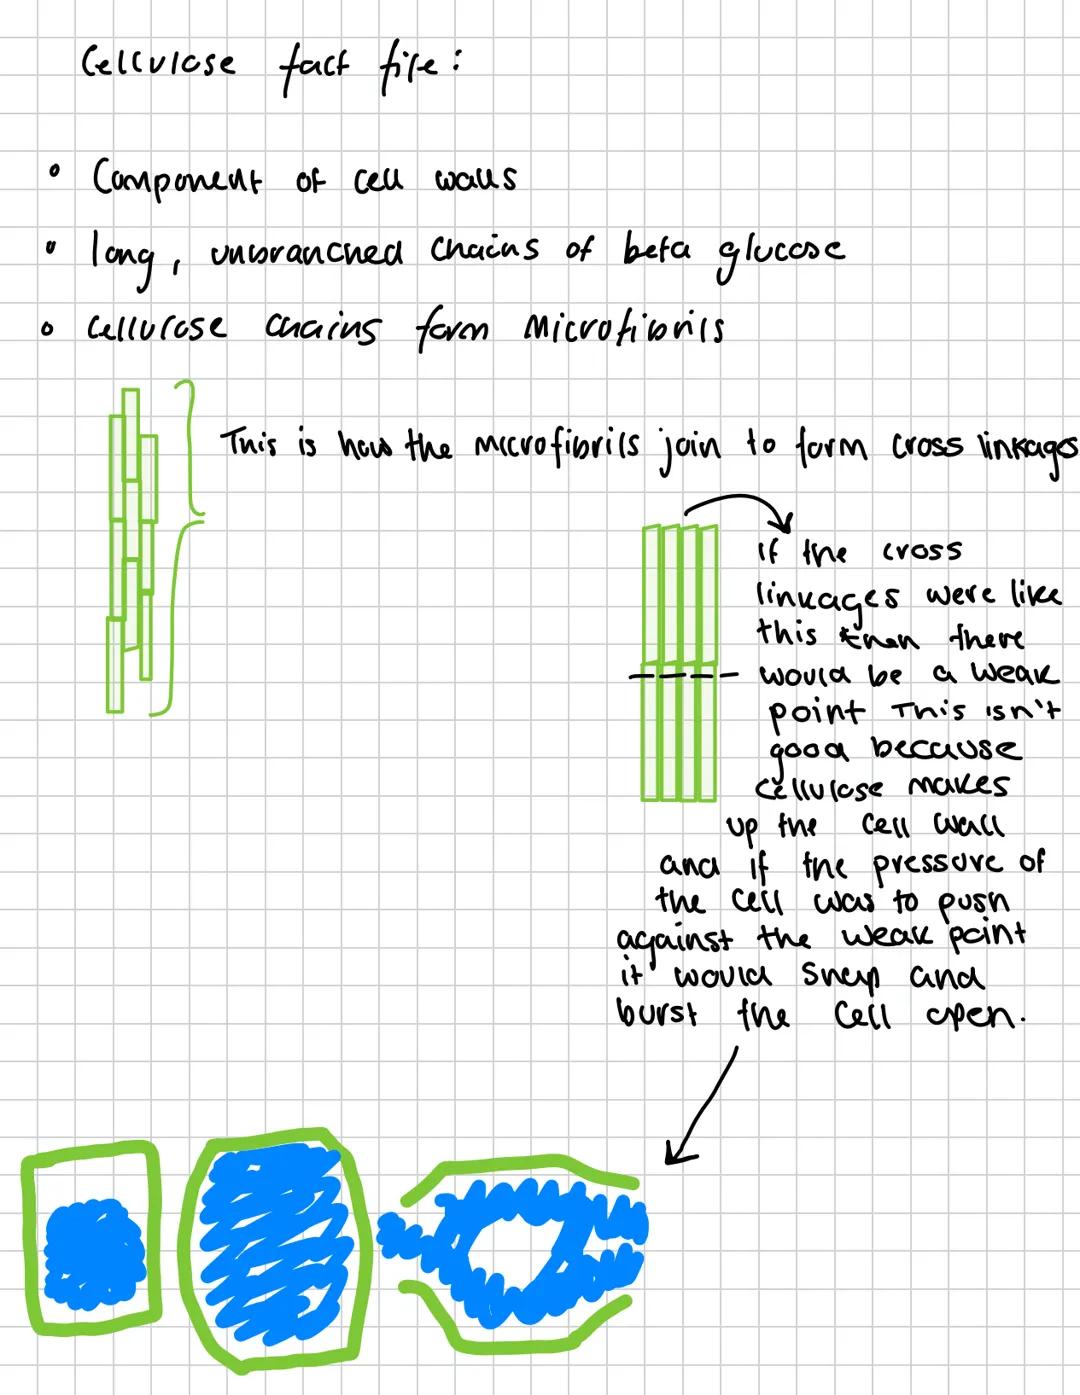 Cellulose fact file:
Component of cell walls
long, unbranched chains of beta glucose
cellulose chains form Microfibrils
This is how the microfibrils join to form cross linkages
if the cross
linkages were like
this then there
would be a weak
point This isn't
good because
cellulose makes
up the cell wall
and if the pressure of
the cell was to push
against the weak point
it would snap and
burst the cell open.